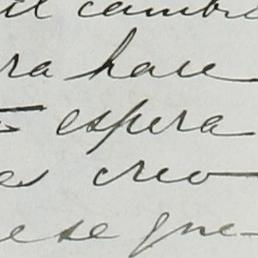 cambi
ra hase
espera
es creo
ese que-